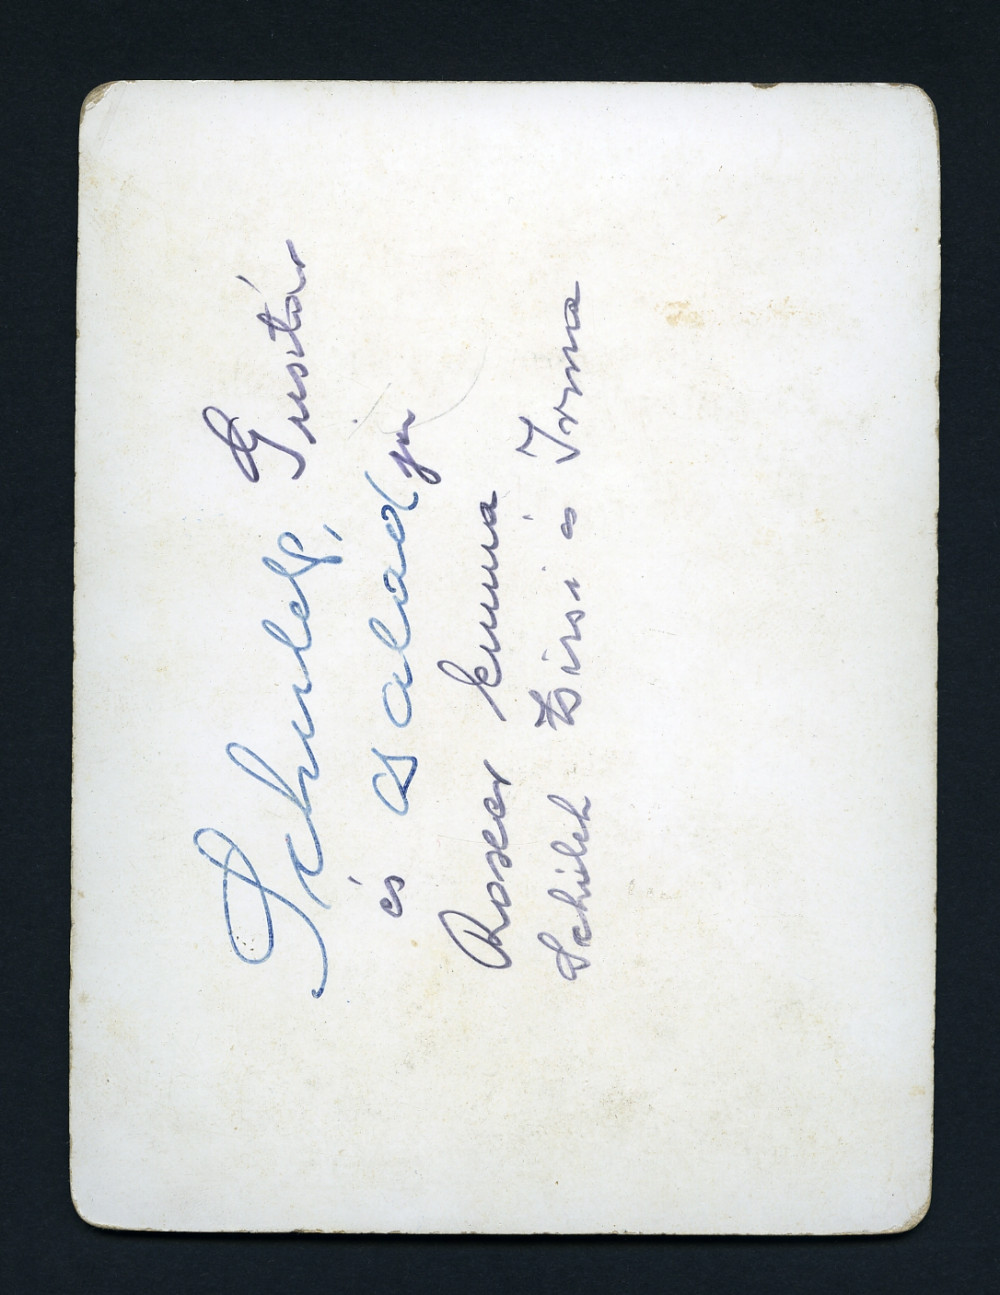 Schulek, Gusztáv
és családja
Roser Emma
Schulek és Irma